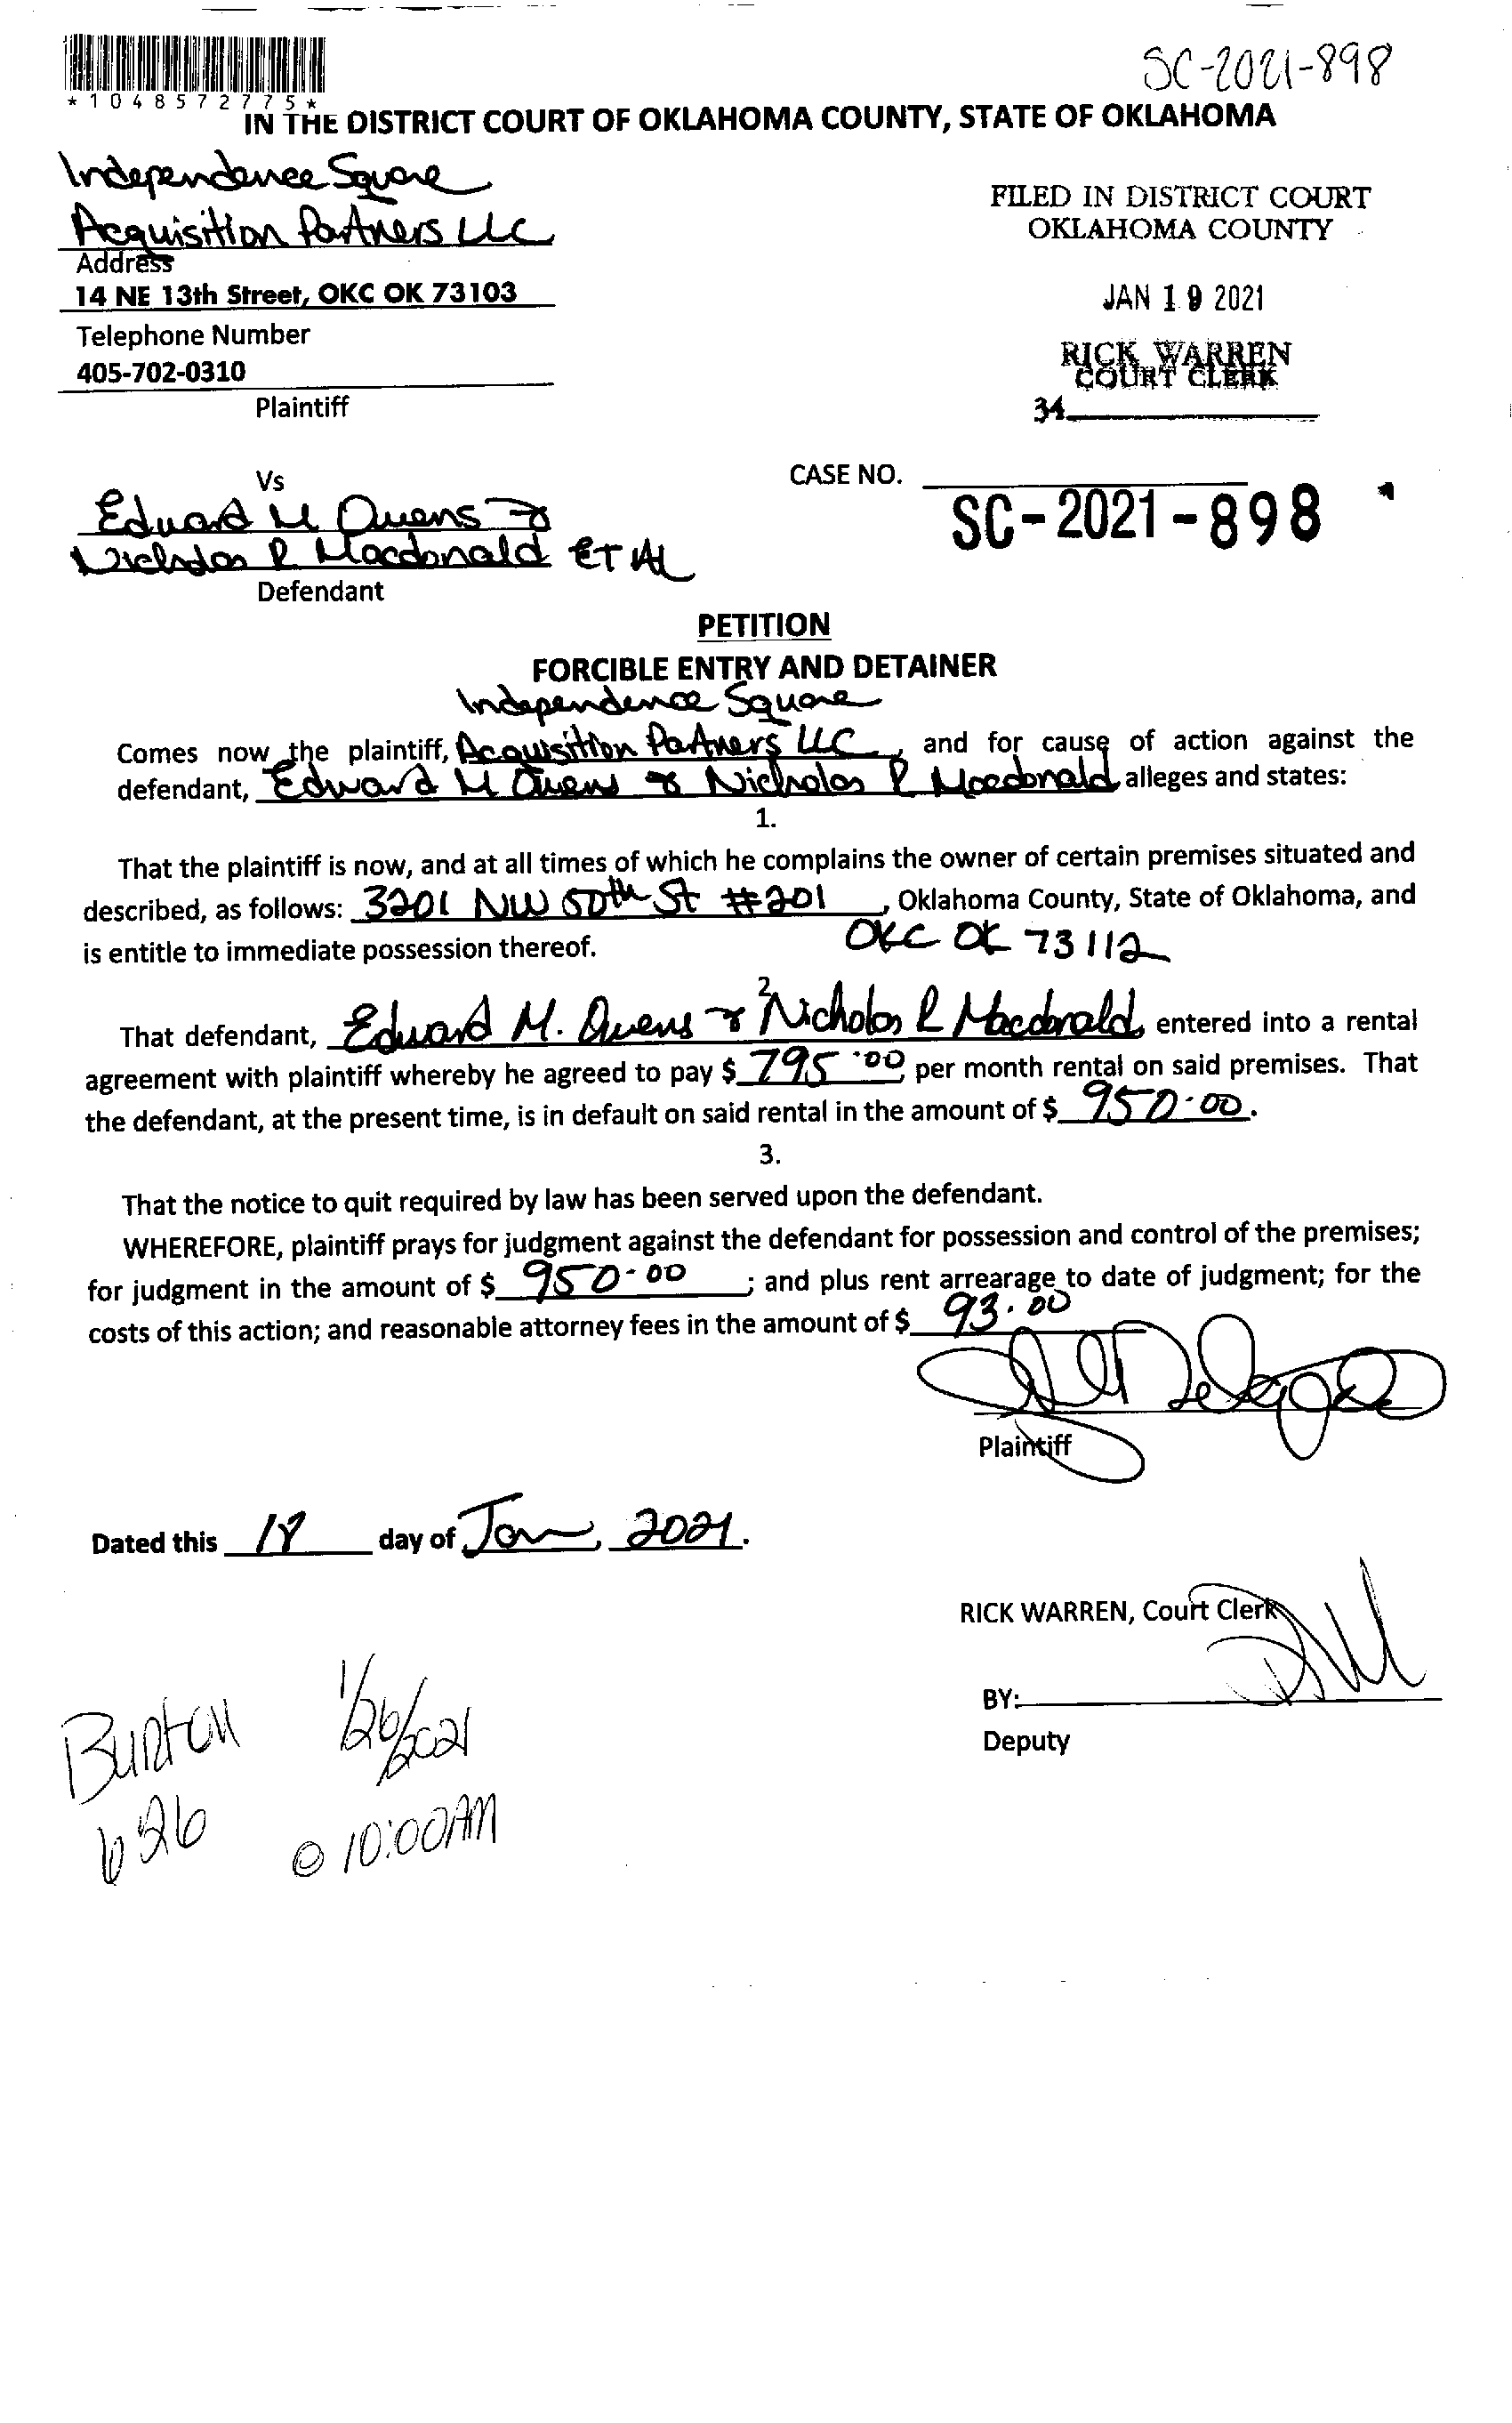 SC-2021-898
*1048572775*
IN THE DISTRICT COURT OF OKLAHOMA COUNTY, STATE OF OKLAHOMA
Independence Square
Acquisition Partners LLC
Address
14 NE 13th Street, OKC OK 73103
Telephone Number
405-702-0310
Plaintiff
FILED IN DISTRICT COURT
OKLAHOMA COUNTY
JAN 19 2021
RICK WARREN
COURT CLERK
34
Vs
CASE NO.
SC-2021-898
Edward M Owens &
Nicholas R Macdonald ET AL
Defendant
PETITION
FORCIBLE ENTRY AND DETAINER
Independence Square
Comes now the plaintiff, Acquisition Partners LLC, and for cause of action against the
defendant, Edward M Owens & Nicholas R Macdonald alleges and states:
1.
That the plaintiff is now, and at all times of which he complains the owner of certain premises situated and
described, as follows: 3201 NW 50th St #201, Oklahoma County, State of Oklahoma, and
is entitle to immediate possession thereof. OKC OK 73112
2.
That defendant, Edward M. Owens & Nicholas R Macdonald, entered into a rental
agreement with plaintiff whereby he agreed to pay $ 795.00 per month rental on said premises. That
the defendant, at the present time, is in default on said rental in the amount of $ 950.00.
3.
That the notice to quit required by law has been served upon the defendant.
WHEREFORE, plaintiff prays for judgment against the defendant for possession and control of the premises;
for judgment in the amount of $ 950.00; and plus rent arrearage to date of judgment; for the
costs of this action; and reasonable attorney fees in the amount of $ 93.00
Plaintiff
Dated this 18 day of Jan, 2021.
RICK WARREN, Court Clerk
BY:
Deputy
Burton 1/26/2021
626 @ 10:00AM